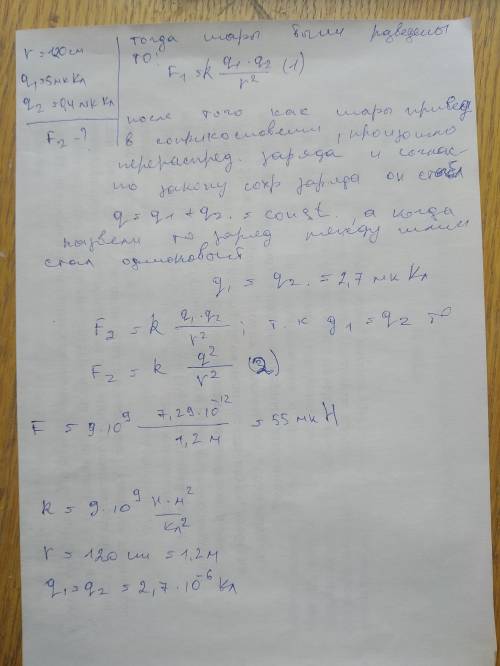 r = 120 см
q₁ = 5 мк Кл
q₂ = 0,4 мк Кл
F₂ - ?
тогда шары были разведены
то:
F₁ = k q₁·q₂/r² (1)
после того как шары привед
в соприкосновении, произошло
перераспред. заряда и соглас
но закону сохр заряда он
q = q₁ + q₂ = const, а когда
развели то заряд между ними
стал одинаковый
q₁ = q₂ = 2,7 мк Кл
F₂ = k q₁·q₂/r² ; т.к q₁ = q₂ то
F₂ = k q²/r² (2)
F = 9·10⁹ 7,29·10⁻¹²/1,2 м = 55 мк Н
k = 9·10⁹ Н·м²/Кл²
r = 120 см = 1,2 м
q₁ = q₂ = 2,7·10⁻⁶ Кл